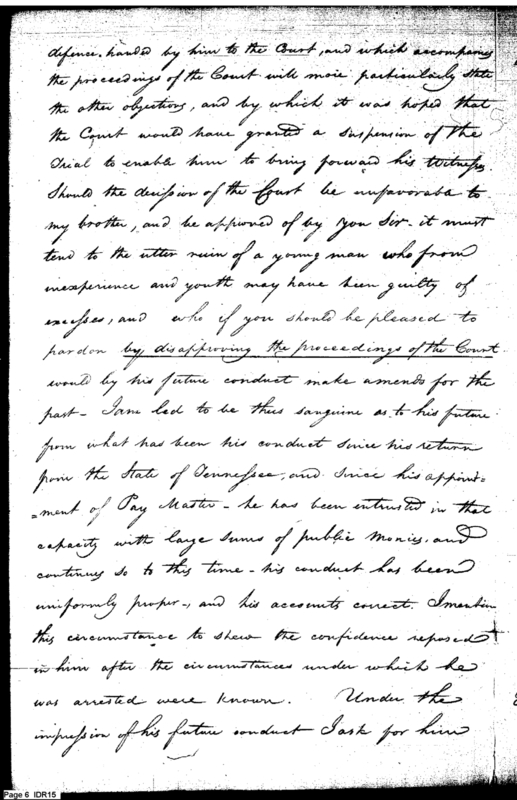 defence. handed by him to the Court, and which accompanies
the proceedings of the Court will more particularly state
the other objections, and by which it was hoped that
the Court would have granted a suspension of the
Trial to enable him to bring forward his Witnesses.
Should the decission of the Court be unfavorable to
my brother, and be approved of by you Sir - it must
tend to the utter ruin of a young man who from
inexperience and youth may have been guilty of
excesses, and who if you should be pleased to
pardon by disapproving the proceedings of the Court
would by his future conduct make amends for the
past - I am led to be thus sanguine as to his future
from what has been his conduct since his return
from the State of Tennessee, and since his appoint=
=ment of Pay Master - he has been entrusted in that
capacity with large sums of public monies, and
continues so to this time - his conduct has been
uniformly proper -, and his accounts correct. I mention
this circumstance to shew the confidence reposed
in him after the circumstances under which he
was arrested were known. Under the
impression of his future conduct I ask for him
Page 6 IDR15